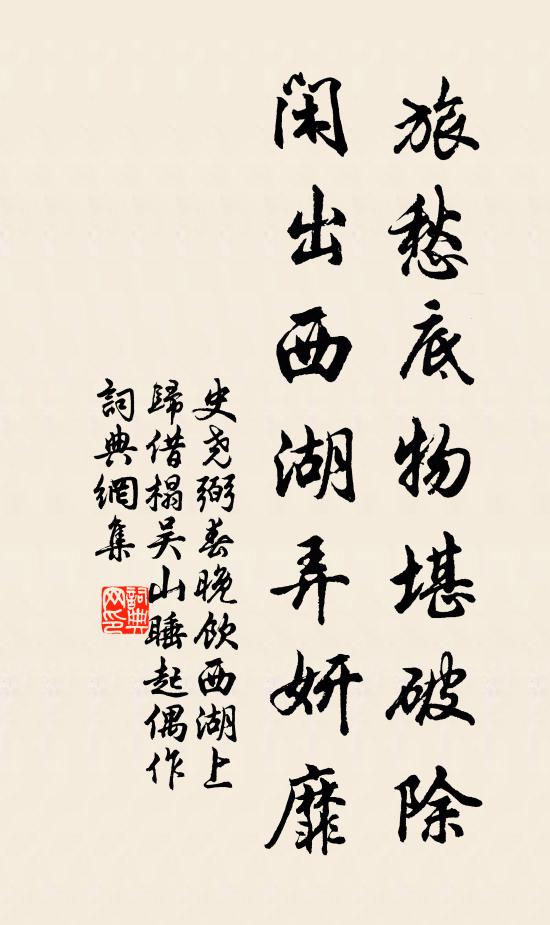 旅愁底物堪破除
閑出西湖弄妍靡
史尧弼春晚飲西湖上
歸借榻吴山睡起偶作
詞典網集
詞典
网印